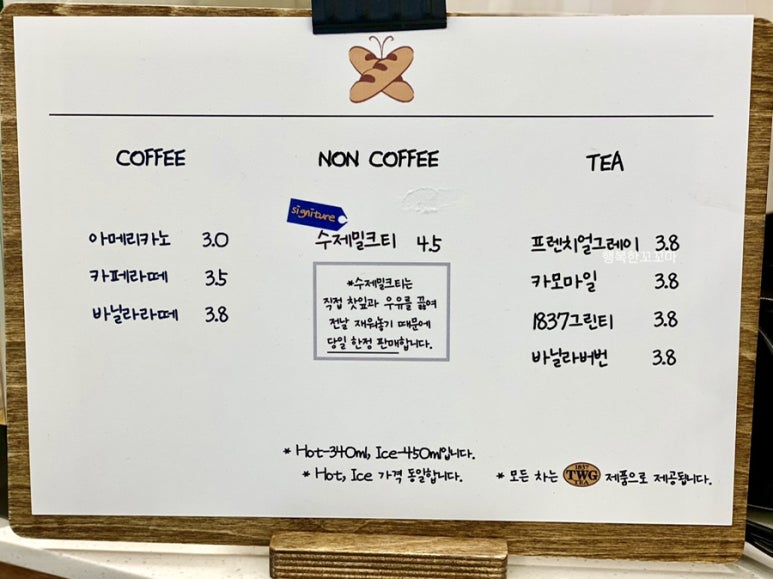 COFFEE
아메리카노 3.0
카페라떼 3.5
바닐라라떼 3.8
NON COFFEE
signiture
수제밀크티 4.5
*수제밀크티는
직접 찻잎과 우유를 끓여
전날 재워놓기 때문에
당일 한정 판매합니다.
TEA
프렌치얼그레이 3.8
행복한꼬꼬마
카모마일 3.8
1837그린티 3.8
바닐라버번 3.8
* Hot-340ml, Ice-450ml입니다.
* Hot, Ice 가격 동일합니다.
* 모든 차는 1837 TWG TEA 제품으로 제공됩니다.